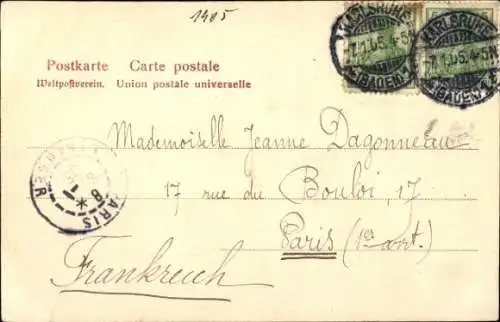 1905
Postkarte Carte postale
Weltpostverein. Union postale universelle
KARLSRUHE
7.1.05.4-5N
(BADEN)
KARLSRUHE
7.1.05.4-5N
(BADEN)
Mademoiselle Jeanne Dagonneau
17 rue du Bouloi, 17
Paris (1er arrt.)
Frankreich
PARIS
8
1